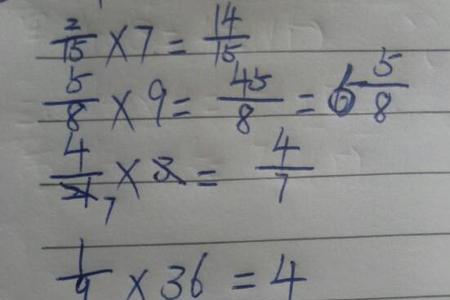 2/15 × 7 = 14/15
5/8 × 9 = 45/8 = 6 5/8
4/21 7 × 3 = 4/7
1/9 × 36 = 4